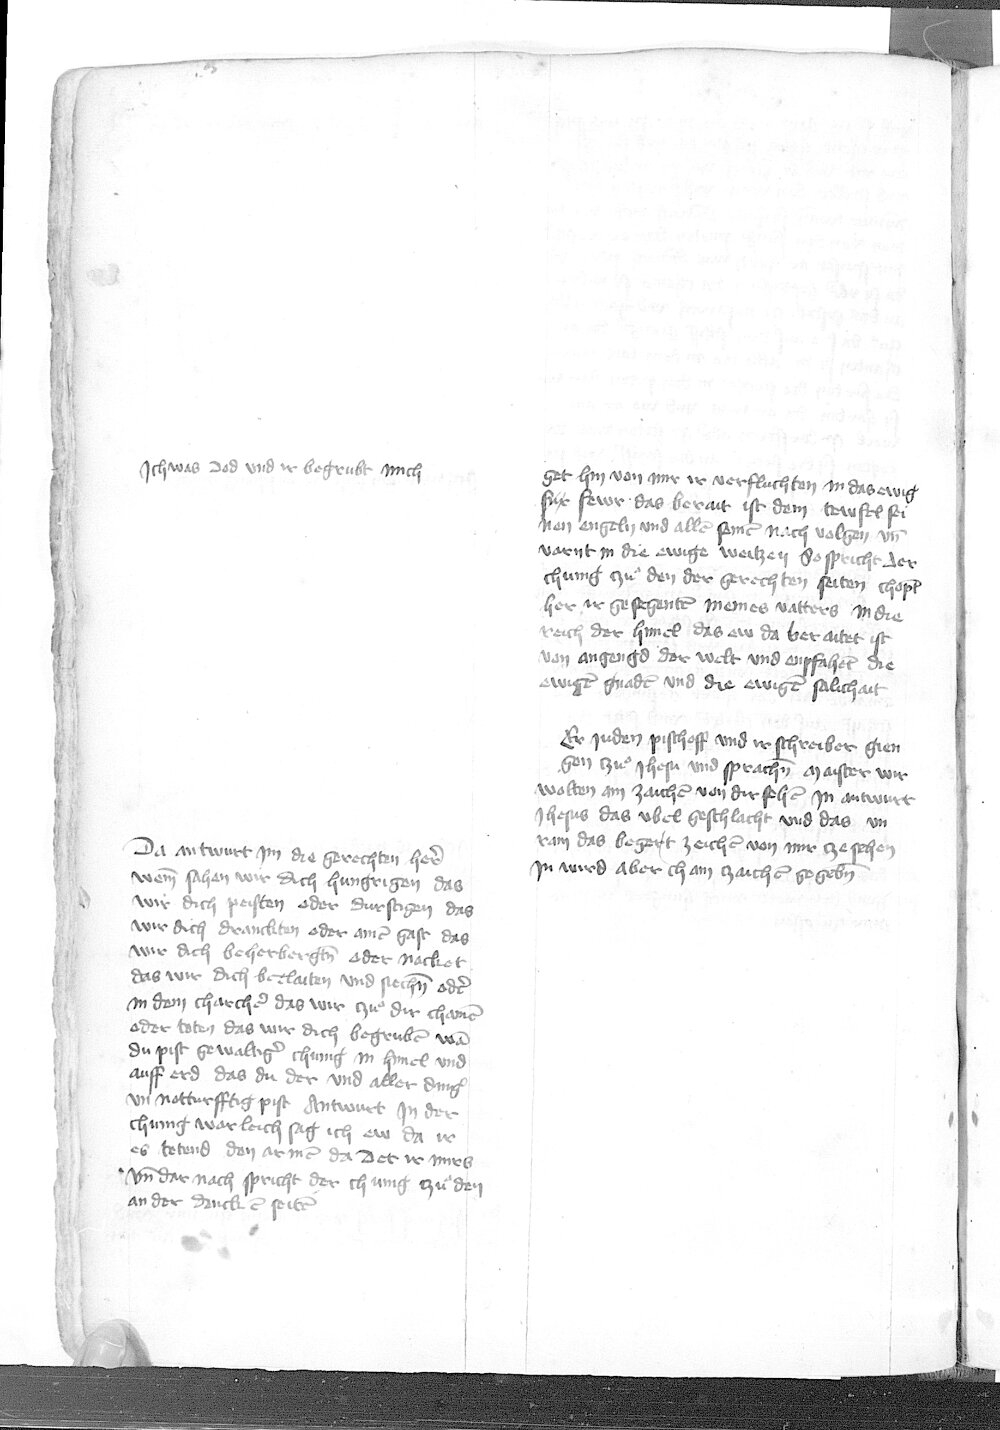 Ich was Dod und ir begrubt mich
Da antwurt Im die gerechten her̄
wem̄ sahen wir dich hungrigen das
wir dich peisten oder durstigen das
wir dich dranckten oder ainē gast das
wir dich beherbergtn̄ oder nacket
das wir dich beclaiten und siechn̄ odr̄
in dem charcher̄ das wir czů dir chamē
oder toten das wir dich begrubē wā
du pist gewaltigr̄ chunig in himel und
auff erd das du der und aller ding
un notturfftig pist Antwurt In der
chunig warleich sag ich ew da ir
es tetend den armē da Det ir mirs
Vn̄ dar nach spricht der chunig czů den
an der denckē seitē
get hin von mir ir verfluchten in das ewig
fur fewr das berait ist dem tewfel sei
nen engeln und allē seinē nach volgen vn̄
varnt in die ewige weitzen So spricht Der
chunig czů den der gerechten seiten chopt
her ir gesegentē meines vatters in die
reich der himel das ew da beraitet ist
von angengd der welt und enpfahet die
ewigē gnadē und die ewigē salichait
Er Juden pischoff und ir schreiber gien
gen czů Jhesu und sprachn̄ Maister wir
wolten ain zaichē von dir sehē In antwurt
Jhesus das ubel geschlacht und das un
rain das begert zeichē von mir cze sehen
In wird aber chain czaichē gegebn̄